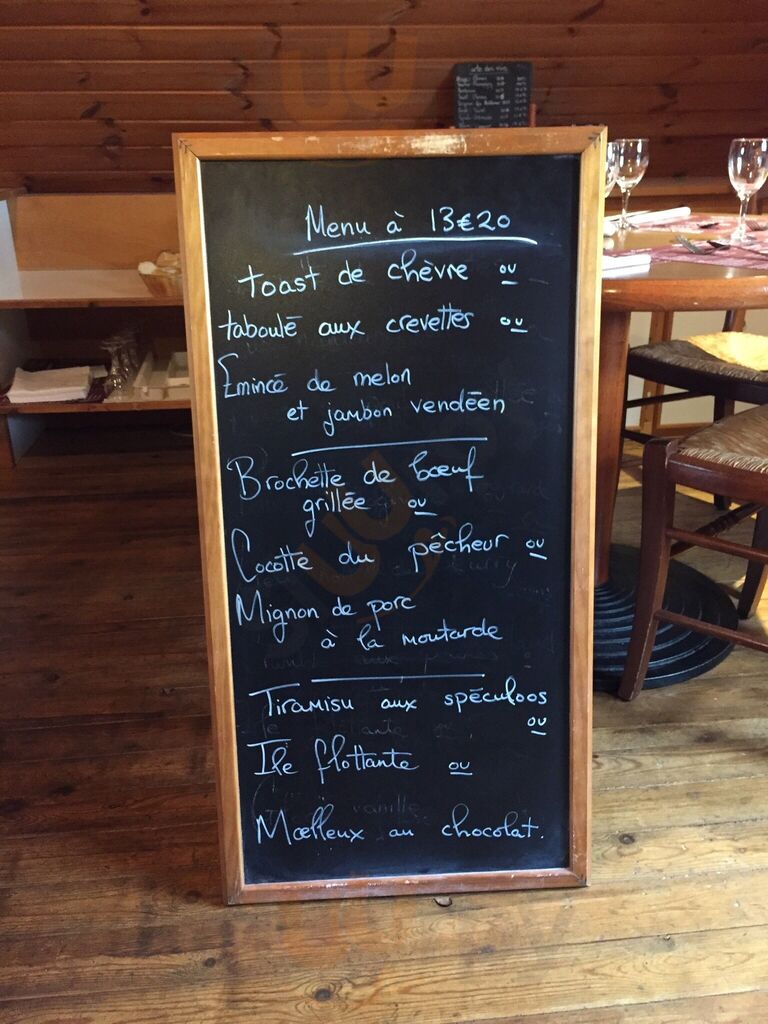 Menu à 13€20
toast de chèvre ou
taboulé aux crevettes ou
Emincé de melon
et jambon vendéen
Brochette de bœuf
grillée ou
Cocotte du pêcheur ou
Mignon de porc
à la moutarde
Tiramisu aux spéculoos
ou
Ile flottante ou
Mœlleux au chocolat.